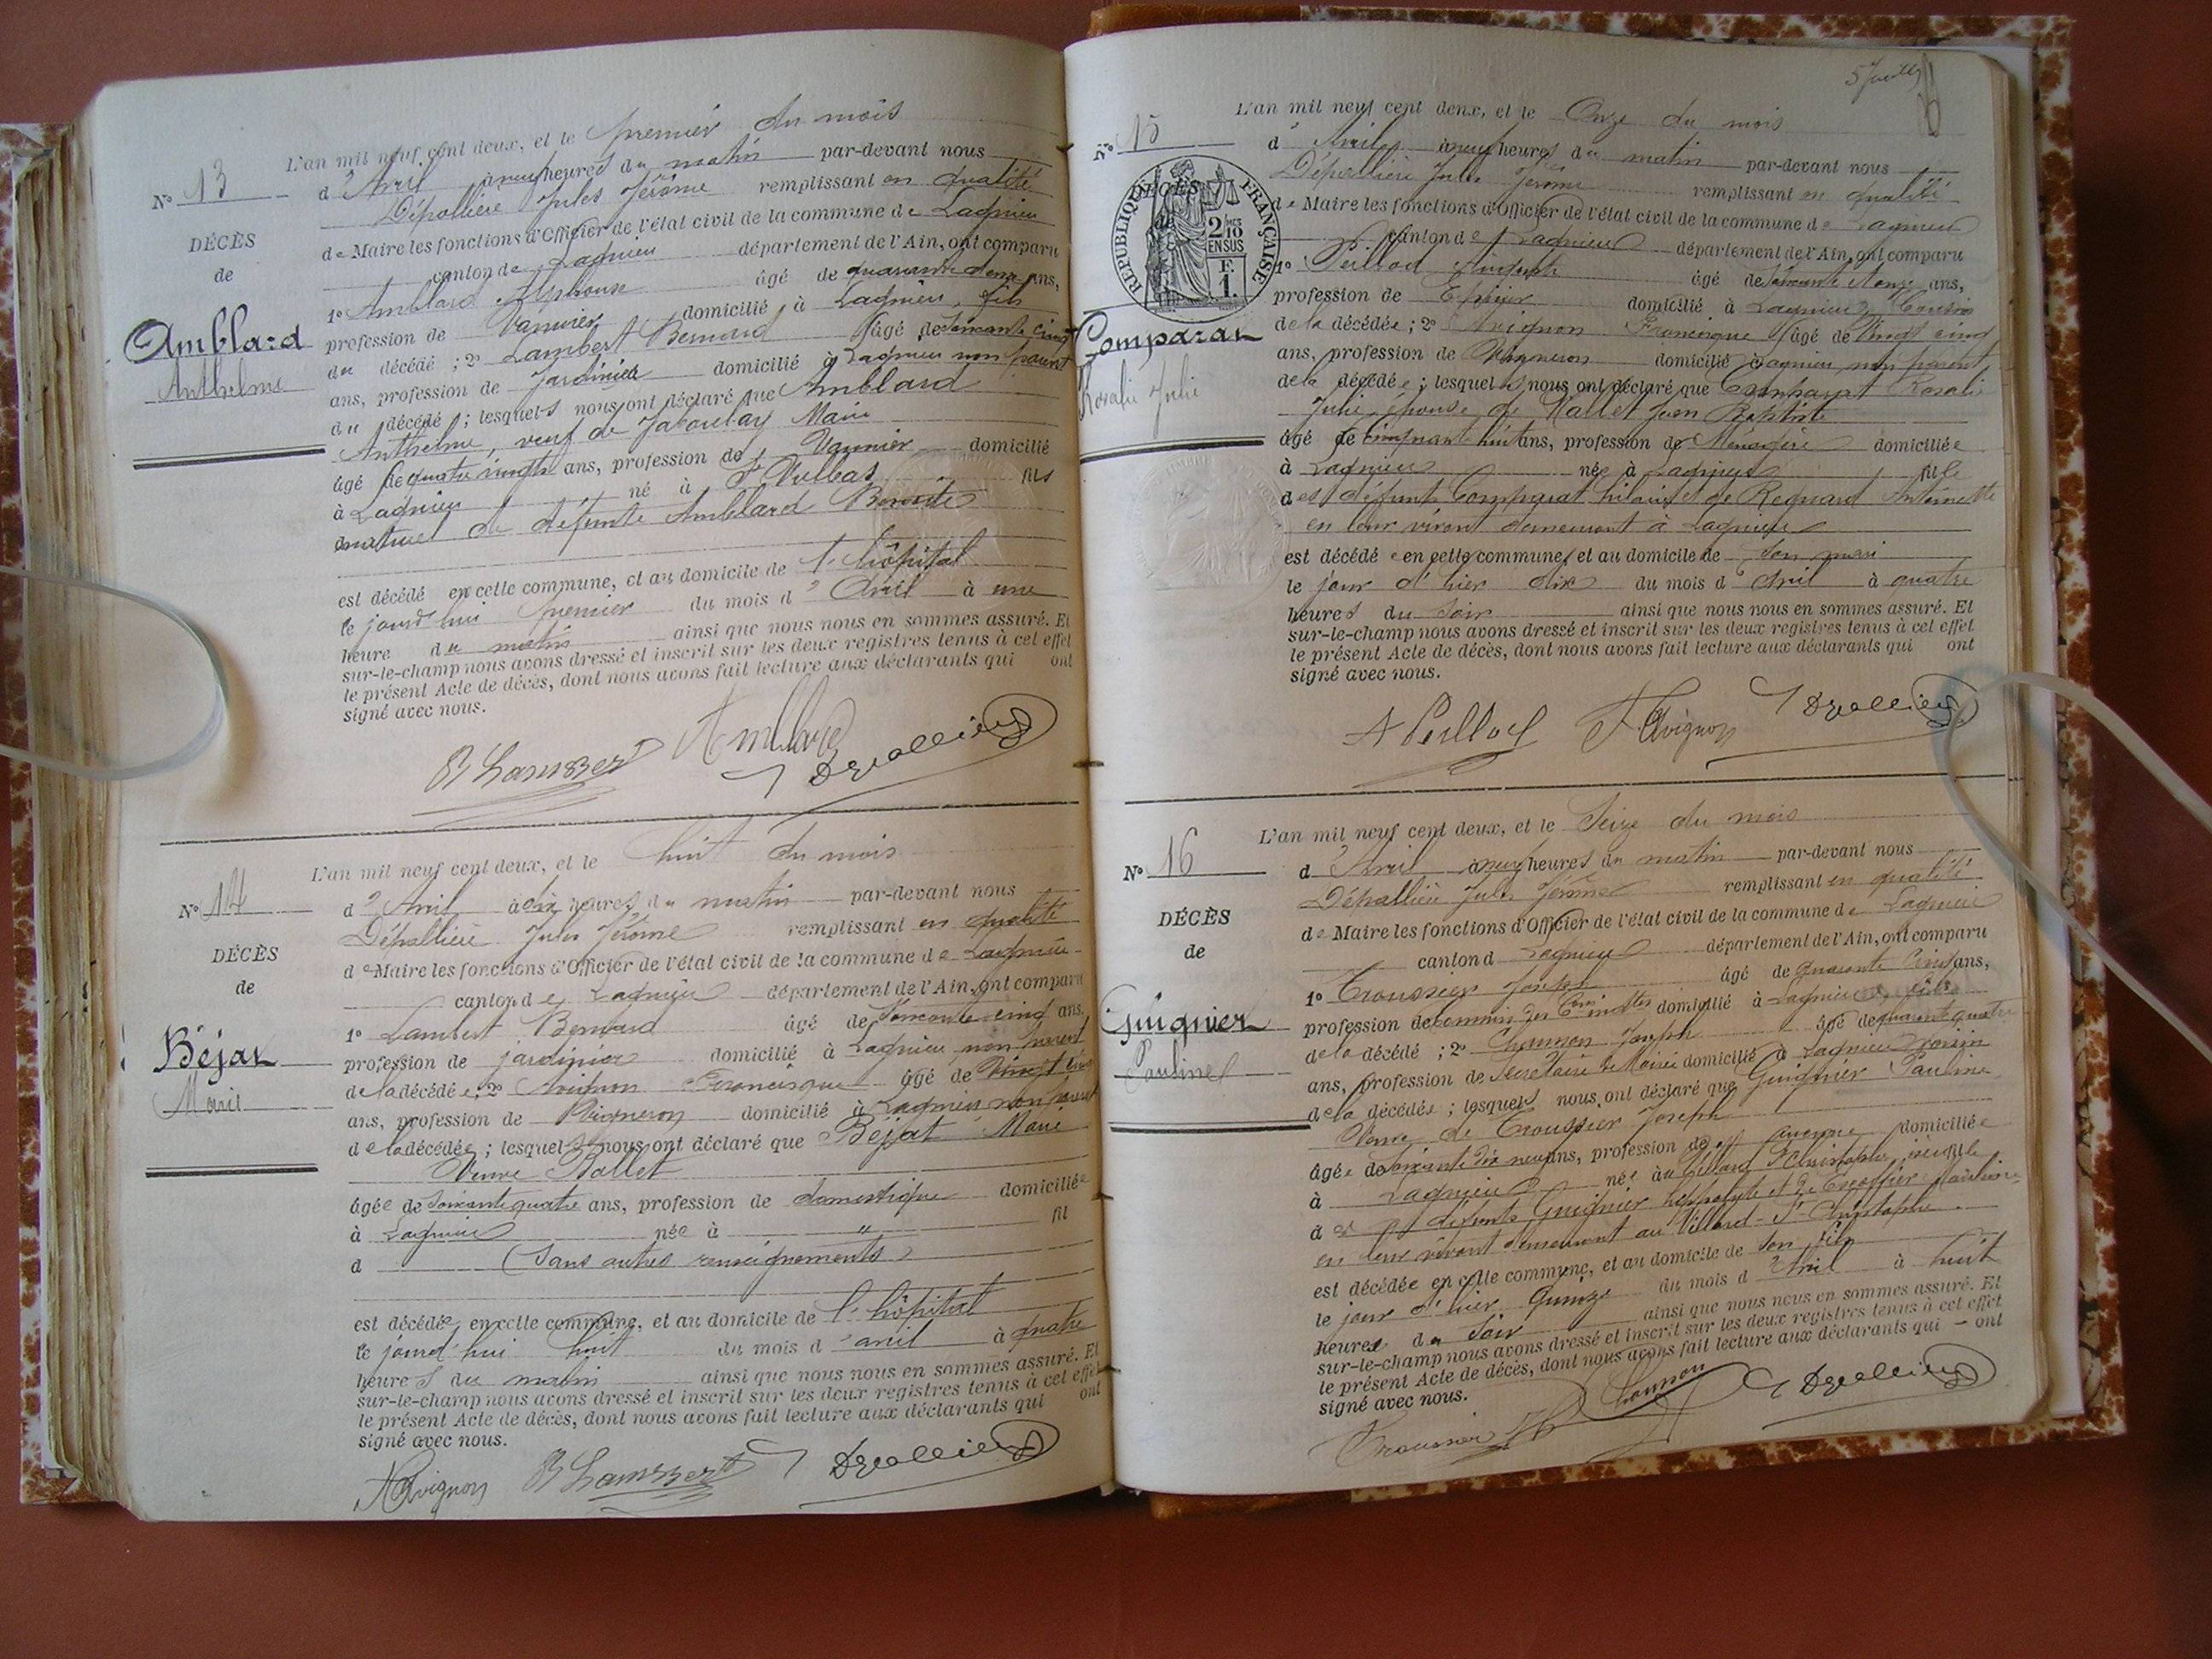 L'an mil neuf cent deux, et le premier du mois
N° 13
d'Avril à neuf heures du matin par-devant nous
Dépallière Jules Jérôme remplissant en qualité
DÉCÈS
de Maire les fonctions d'Officier de l'état civil de la commune de Lagnieu
de
canton de Lagnieu département de l'Ain, ont comparu
1° Amblard Alphonse âgé de quarante deux ans,
Amblard
profession de Vannier domicilié à Lagnieu, fils
Anthelme
du décédé ; 2° Lambert Bernard âgé de soixante cinq
ans, profession de Jardinier domicilié à Lagnieu non parent
du décédé ; lesquels nous ont déclaré que Amblard
Anthelme, veuf de Jaboulay Marie
âgé de quatre vingts ans, profession de Vannier domicilié
à Lagnieu né à St Vulbas fils
naturel de défunte Amblard Benoite
est décédé en cette commune, et au domicile de l'hôpital
le jourd'hui premier du mois d'Avril à une
heure du matin ainsi que nous nous en sommes assuré. Et
sur-le-champ nous avons dressé et inscrit sur les deux registres tenus à cet effet
le présent Acte de décès, dont nous avons fait lecture aux déclarants qui ont
signé avec nous.
Amblard
L'an mil neuf cent deux, et le huit du mois
N° 14
d'Avril à dix heures du matin par-devant nous
Dépallière Jules Jérôme remplissant en qualité
DÉCÈS
de Maire les fonctions d'Officier de l'état civil de la commune de Lagnieu
de
canton de Lagnieu département de l'Ain, ont comparu
1° Lambert Bernard âgé de soixante cinq ans.
Béjat
profession de jardinier domicilié à Lagnieu non parent
Marie
de la décédée ; 2° Avignon Francisque âgé de vingt cinq
ans, profession de Vigneron domicilié à Lagnieu non parent
de la décédée ; lesquels nous ont déclaré que Béjat Marie
Veuve Ballet
âgée de soixante quatre ans, profession de domestique domiciliée
à Lagnieu née à " fil
d (Sans autres renseignements)
est décédée en cette commune, et au domicile de l'hôpital
le jourd'hui huit du mois d'avril à quatre
heures du matin ainsi que nous nous en sommes assuré. Et
sur-le-champ nous avons dressé et inscrit sur les deux registres tenus à cet effet
le présent Acte de décès, dont nous avons fait lecture aux déclarants qui ont
signé avec nous.
Avignon
L'an mil neuf cent deux, et le Onze du mois
N° 15
d'Avril à neuf heures du matin par-devant nous
Dépallière Jules Jérôme remplissant en qualité
DÉCÈS
RÉPUBLIQUE FRANÇAISE
2/10 EN SUS
F. 1.
de Maire les fonctions d'Officier de l'état civil de la commune de Lagnieu
canton de Lagnieu département de l'Ain, ont comparu
1° Peillod âgé de ans,
profession de domicilié à Lagnieu Cousin
Comparat
de la décédée ; 2° Avignon Francisque âgé de vingt cinq
Rosalie Julie
ans, profession de Vigneron domicilié à Lagnieu non parent
de la décédée ; lesquels nous ont déclaré que Comparat Rosalie
Julie épouse de Vallet Jean Baptiste
âgé de cinquante huit ans, profession de Ménagère domiciliée
à Lagnieu née à Lagnieu fille
des défunts Comparat hilaire et de Regnard Antoinette
en leur vivant demeurant à Lagnieu
est décédée en cette commune, et au domicile de son mari
le jour d'hier dix du mois d'Avril à quatre
heures du soir ainsi que nous nous en sommes assuré. Et
sur-le-champ nous avons dressé et inscrit sur les deux registres tenus à cet effet
le présent Acte de décès, dont nous avons fait lecture aux déclarants qui ont
signé avec nous.
A Peillod F Avignon
L'an mil neuf cent deux, et le Seize du mois
N° 16
d'Avril à neuf heures du matin par-devant nous
Dépallière Jules Jérôme remplissant en qualité
DÉCÈS
de Maire les fonctions d'Officier de l'état civil de la commune de Lagnieu
de
canton d Lagnieu département de l'Ain, ont comparu
1° Troussier Joseph âgé de quarante cinq ans,
Guignier
profession de domicilié à Lagnieu fils
Pauline
de la décédé ; 2° Chanson Joseph âgé de quarante quatre
ans, profession de Secrétaire de Mairie domicilié à Lagnieu voisin
de la décédée ; lesquels nous ont déclaré que Guignier Pauline
Veuve de Troussier Joseph
âgée de soixante dix neuf ans, profession de domiciliée
à Lagnieu née au Villard St Christophe fille
des défunts Guignier hippolyte et de
en leur vivant demeurant au Villard-St-Christophe
est décédée en cette commune, et au domicile de son fils
le jour d'hier Quinze du mois d'Avril à huit
heures du soir ainsi que nous nous en sommes assuré. Et
sur-le-champ nous avons dressé et inscrit sur les deux registres tenus à cet effet
le présent Acte de décès, dont nous avons fait lecture aux déclarants qui ont
signé avec nous.
Chanson
Troussier